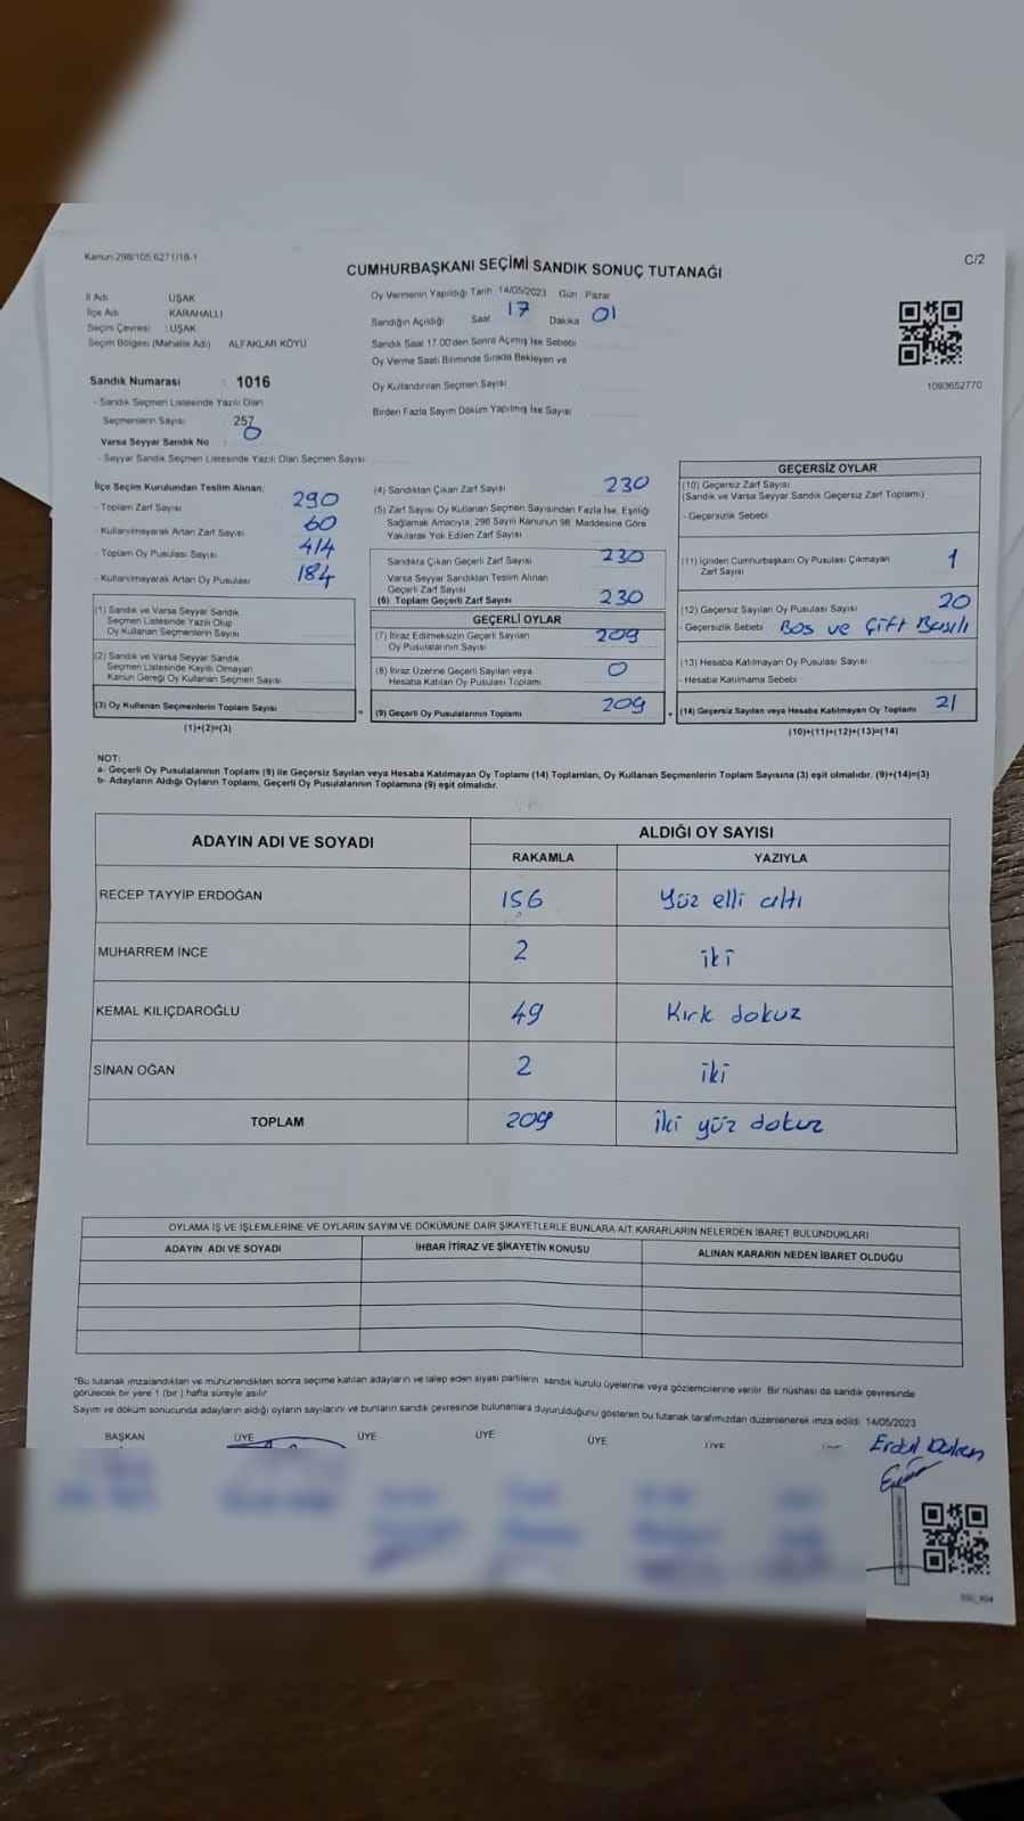 Kanun:298/105 6271/18-1
C/2
CUMHURBAŞKANI SEÇİMİ SANDIK SONUÇ TUTANAĞI
İl Adı UŞAK
İlçe Adı KARAHALLI
Seçim Çevresi :UŞAK
Seçim Bölgesi (Mahalle Adı) ALFAKLAR KÖYÜ
Sandık Numarası : 1016
- Sandık Seçmen Listesinde Yazılı Olan
Seçmenlerin Sayısı 257
Varsa Seyyar Sandık No : 0
- Seyyar Sandık Seçmen Listesinde Yazılı Olan Seçmen Sayısı
Oy Vermenin Yapıldığı Tarih 14/05/2023 Gün Pazar
Sandığın Açıldığı Saat 17 Dakika 01
Sandık Saat 17.00'den Sonra Açılmış İse Sebebi
Oy Verme Saati Bitiminde Sırada Bekleyen ve
Oy Kullandırılan Seçmen Sayısı
Birden Fazla Sayım Döküm Yapılmış İse Sayısı
1093652770
İlçe Seçim Kurulundan Teslim Alınan;
- Toplam Zarf Sayısı 290
- Kullanılmayarak Artan Zarf Sayısı 60
- Toplam Oy Pusulası Sayısı 414
- Kullanılmayarak Artan Oy Pusulası 184
(1) Sandık ve Varsa Seyyar Sandık
Seçmen Listesinde Yazılı Olup
Oy Kullanan Seçmenlerin Sayısı
(2) Sandık ve Varsa Seyyar Sandık
Seçmen Listesinde Kayıtlı Olmayan
Kanun Gereği Oy Kullanan Seçmen Sayısı
(3) Oy Kullanan Seçmenlerin Toplam Sayısı
(1)+(2)=(3)
(4) Sandıktan Çıkan Zarf Sayısı 230
(5) Zarf Sayısı Oy Kullanan Seçmen Sayısından Fazla İse, Eşitliği
Sağlamak Amacıyla, 298 Sayılı Kanunun 98. Maddesine Göre
Yakılarak Yok Edilen Zarf Sayısı
Sandıkta Çıkan Geçerli Zarf Sayısı 230
Varsa Seyyar Sandıktan Teslim Alınan
Geçerli Zarf Sayısı
(6) Toplam Geçerli Zarf Sayısı 230
GEÇERLİ OYLAR
(7) İtiraz Edilmeksizin Geçerli Sayılan
Oy Pusulalarının Sayısı 209
(8) İtiraz Üzerine Geçerli Sayılan veya
Hesaba Katılan Oy Pusulası Toplamı 0
= (9) Geçerli Oy Pusulalarının Toplamı 209
GEÇERSİZ OYLAR
(10) Geçersiz Zarf Sayısı
(Sandık ve Varsa Seyyar Sandık Geçersiz Zarf Toplamı)
- Geçersizlik Sebebi
(11) İçinden Cumhurbaşkanı Oy Pusulası Çıkmayan
Zarf Sayısı 1
(12) Geçersiz Sayılan Oy Pusulası Sayısı 20
- Geçersizlik Sebebi Boş ve Çift Basılı
(13) Hesaba Katılmayan Oy Pusulası Sayısı
- Hesaba Katılmama Sebebi
+ (14) Geçersiz Sayılan veya Hesaba Katılmayan Oy Toplamı 21
(10)+(11)+(12)+(13)=(14)
NOT:
a- Geçerli Oy Pusulalarının Toplamı (9) ile Geçersiz Sayılan veya Hesaba Katılmayan Oy Toplamı (14) Toplamları, Oy Kullanan Seçmenlerin Toplam Sayısına (3) eşit olmalıdır. (9)+(14)=(3)
b- Adayların Aldığı Oyların Toplamı, Geçerli Oy Pusulalarının Toplamına (9) eşit olmalıdır.
ADAYIN ADI VE SOYADI ALDIĞI OY SAYISI
RAKAMLA YAZIYLA
RECEP TAYYİP ERDOĞAN 156 Yüz elli altı
MUHARREM İNCE 2 iki
KEMAL KILIÇDAROĞLU 49 Kırk dokuz
SİNAN OĞAN 2 iki
TOPLAM 209 iki yüz dokuz
OYLAMA İŞ VE İŞLEMLERİNE VE OYLARIN SAYIM VE DÖKÜMÜNE DAİR ŞİKAYETLERLE BUNLARA AİT KARARLARIN NELERDEN İBARET BULUNDUKLARI
ADAYIN ADI VE SOYADI İHBAR İTİRAZ VE ŞİKAYETİN KONUSU ALINAN KARARIN NEDEN İBARET OLDUĞU
*Bu tutanak imzalandıktan ve mühürlendikten sonra seçime katılan adayların ve talep eden siyasi partilerin sandık kurulu üyelerine veya gözlemcilerine verilir. Bir nüshası da sandık çevresinde
görülecek bir yere 1 (bir) hafta süreyle asılır
Sayım ve döküm sonucunda adayların aldığı oyların sayılarını ve bunların sandık çevresinde bulunanlara duyurulduğunu gösteren bu tutanak tarafımızdan düzenlenerek imza edildi. 14/05/2023
BAŞKAN ÜYE ÜYE ÜYE ÜYE ÜYE